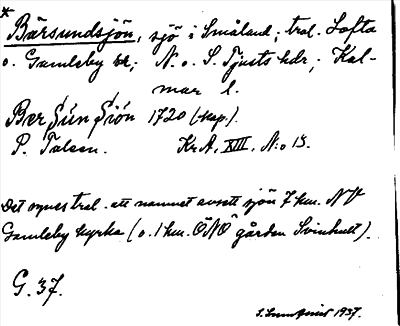 * Bärsundsjön, sjö i Småland; trol. Lofta
o. Gamleby sk; N. o. S. Tjusts hdr; Kal-
mar l.
Ber Sùn Siön 1720 (kap.).
P. Tolsen. KrA, XIII, N:o 15.
Det synes trol. att namnet avsett sjön 7 km. NV
Gamleby kyrka (o. 1 km. ÖNÖ gården Svinhult).
G. 37.
1937.